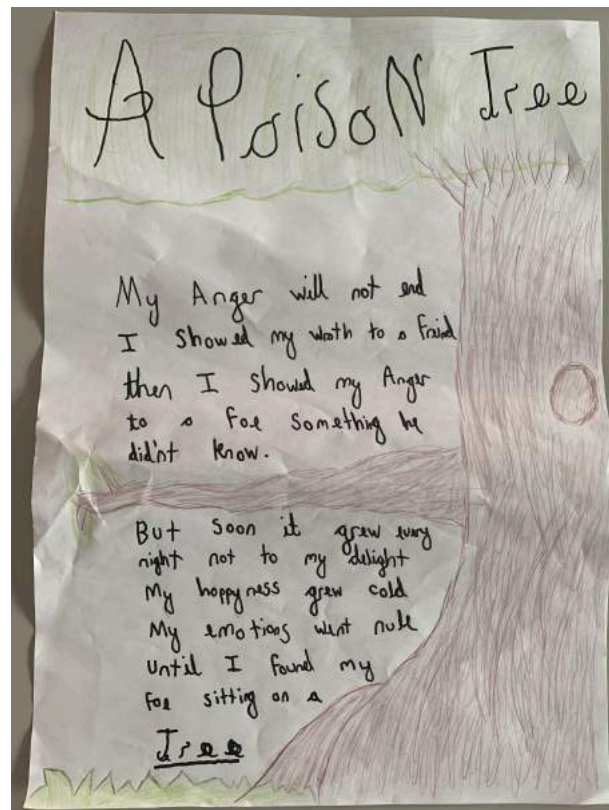 A PoiSoN Tree
My Anger will not end
I Showed my wrath to a fraind
then I showed my Anger
to a foe something he
didn't know.
But soon it grew every
night not to my delight
My happyness grew cold
My emotions went nule
until I found my
foe sitting on a
Tree